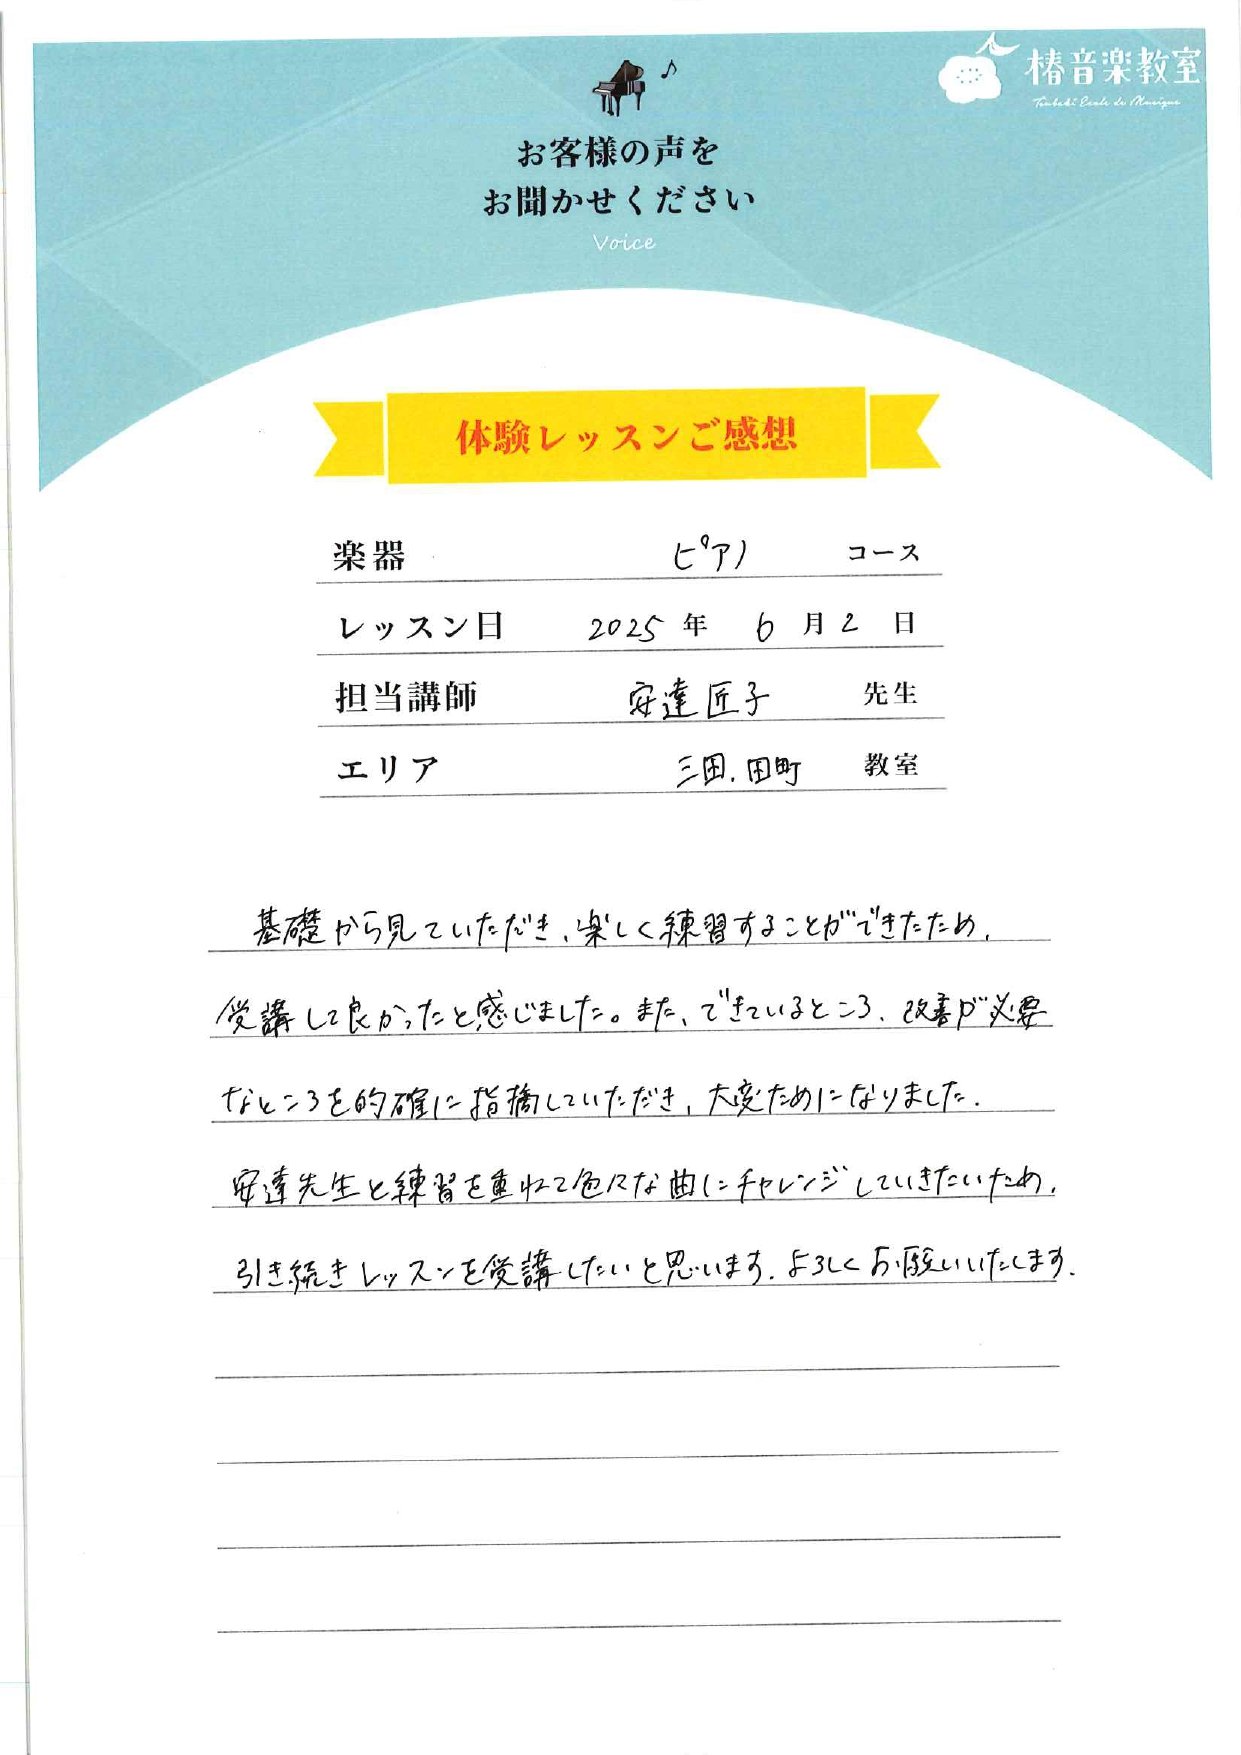 椿音楽教室
Tsubaki Ecole de Musique
お客様の声を
お聞かせください
Voice
体験レッスンご感想
楽器 ピアノ コース
レッスン日 2025 年 6 月 2 日
担当講師 安達匠子 先生
エリア 三田、田町 教室
基礎から見ていただき、楽しく練習することができたため、
受講して良かったと感じました。また、できているところ、改善が必要
なところを的確に指摘していただき、大変ためになりました。
安達先生と練習を重ねて色々な曲にチャレンジしていきたいため、
引き続きレッスンを受講したいと思います。よろしくお願いいたします。